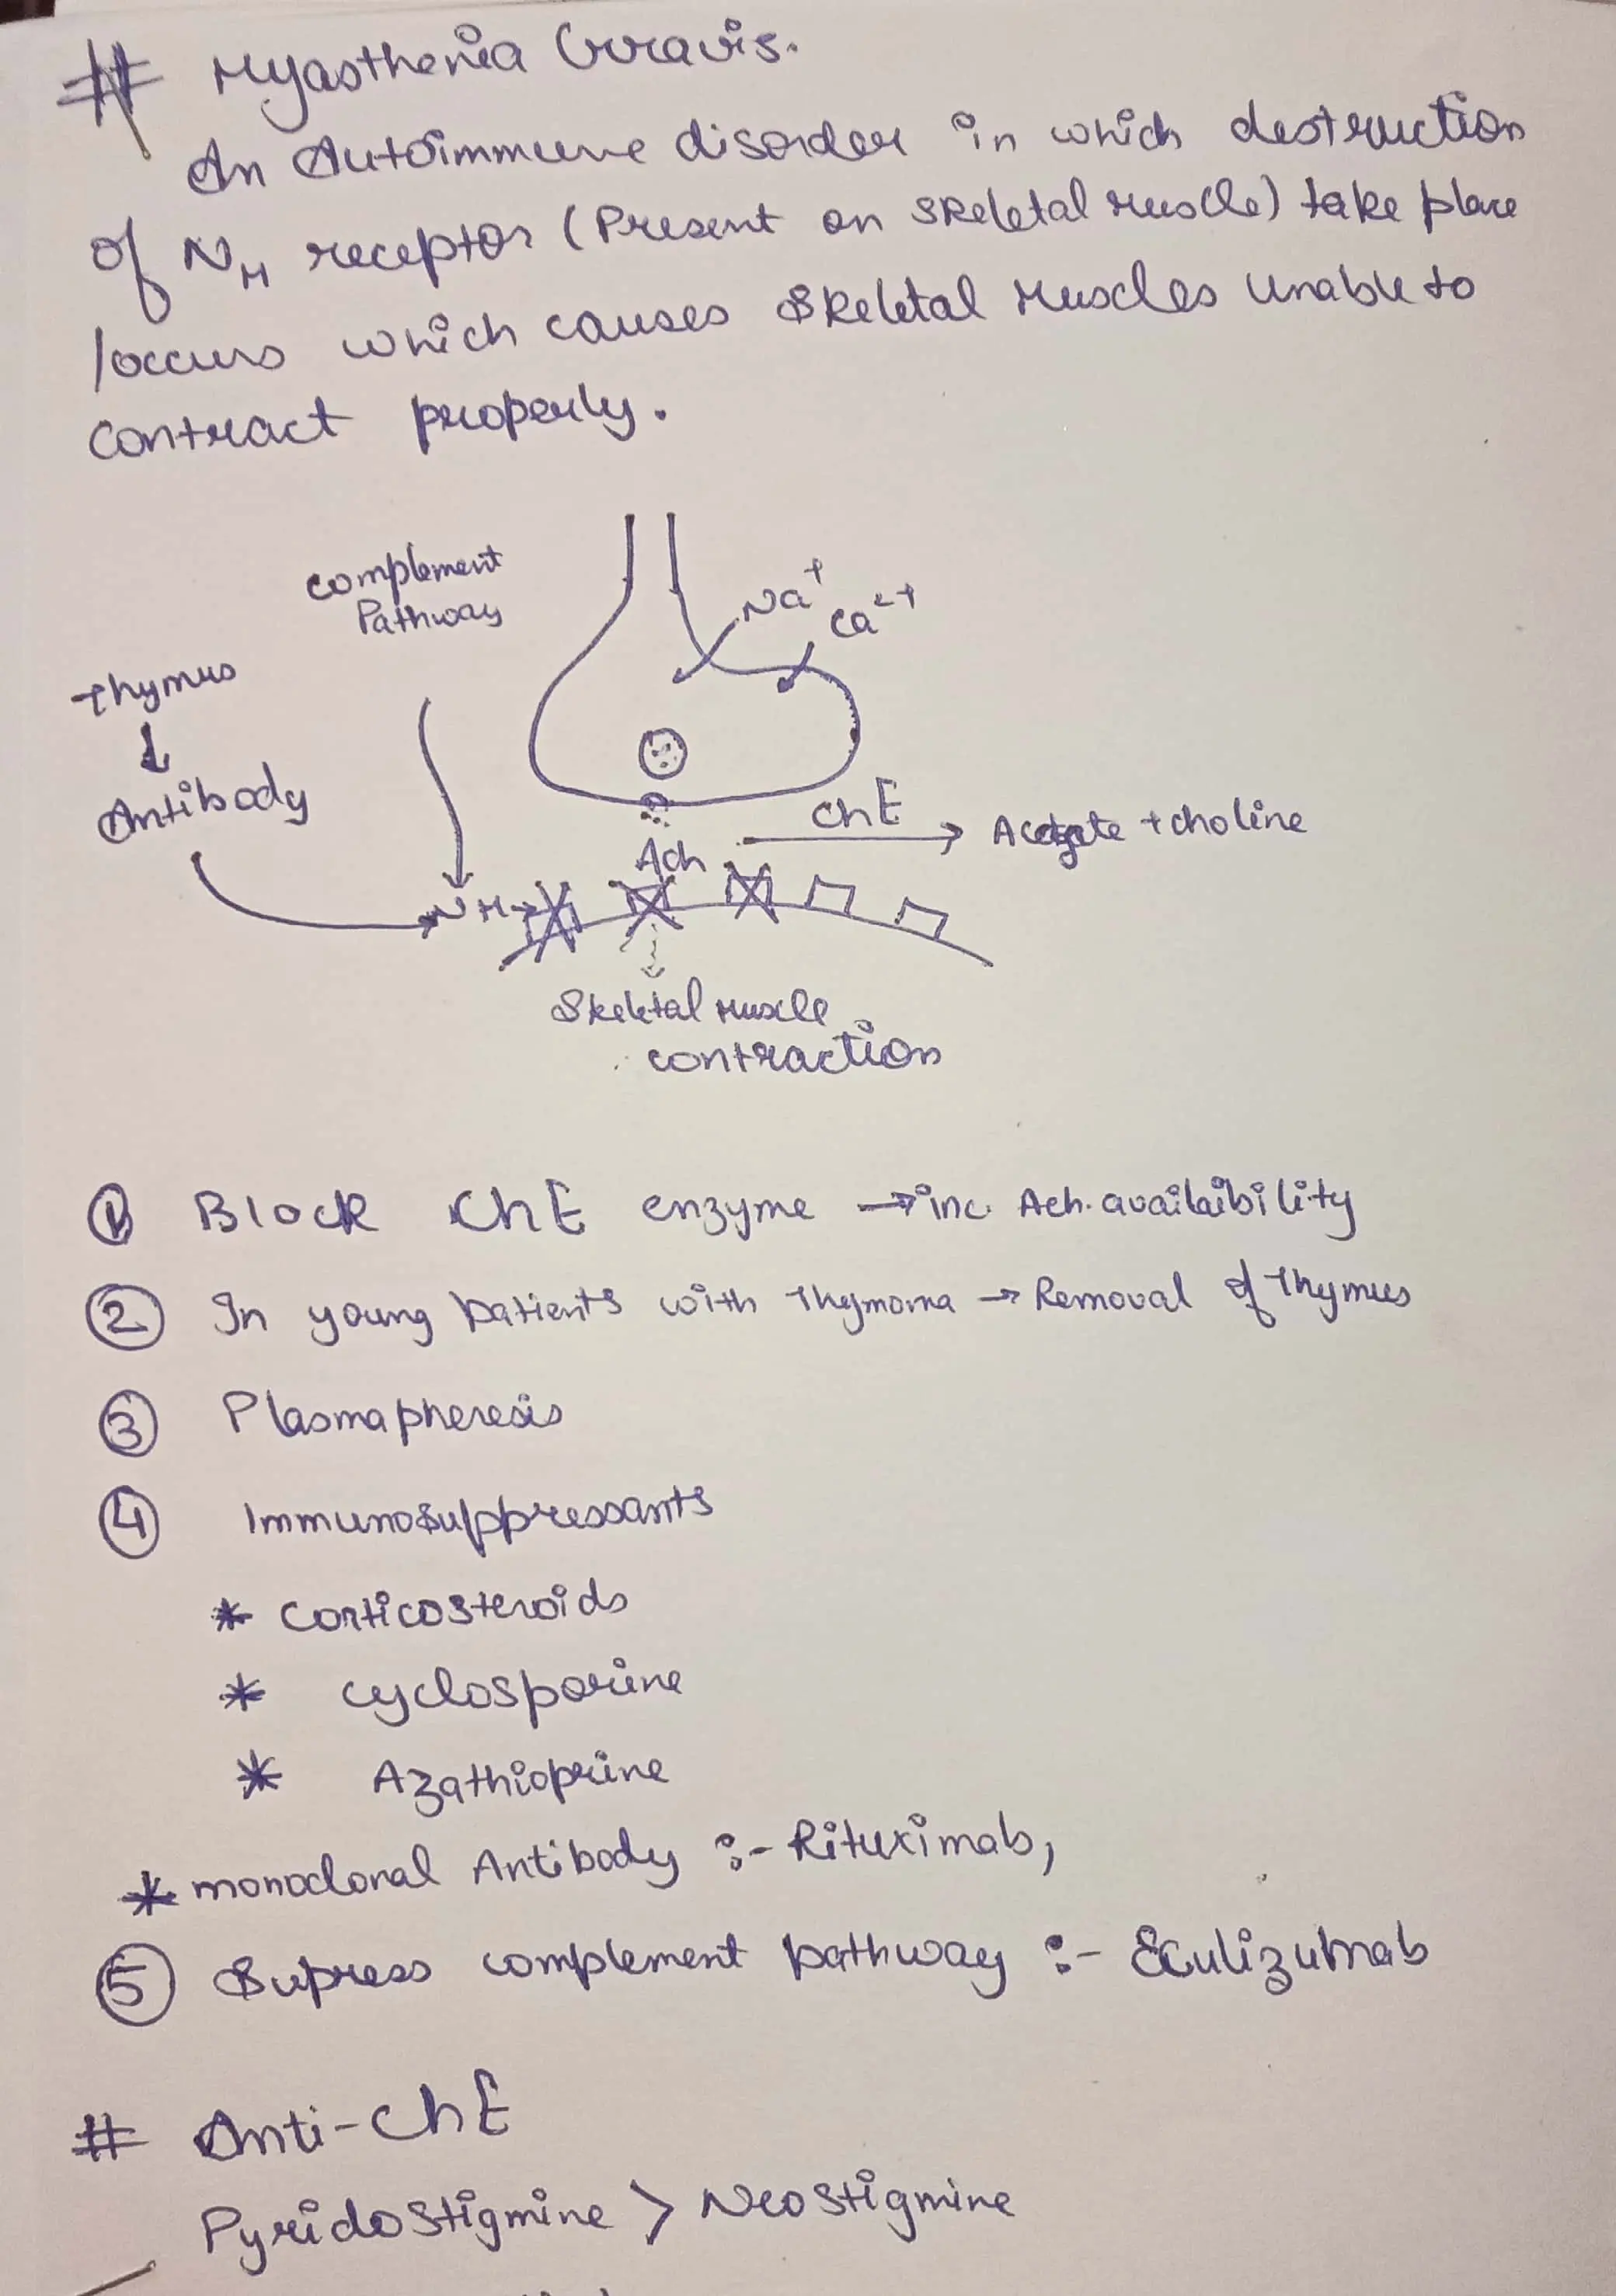 # Myasthenia Gravis.
An Autoimmune disorder in which destruction
of NM receptor (Present on skeletal muscle) take place
/occurs which causes skeletal muscles unable to
contract properly.
complement
Pathway
Na+
Ca2+
Thymus
↓
Antibody
ChE
Acetate + choline
Ach
NM
Skeletal muscle
contraction
① Block ChE enzyme → inc. Ach. availaibility
② In young patients with Thymoma → Removal of Thymus
③ Plasmapheresis
④ Immunosuppressants
* Corticosteroids
* cyclosporine
* Azathioprine
* monoclonal Antibody :- Rituximab,
⑤ Supress complement pathway :- Eculizumab
# Anti-ChE
Pyridostigmine > Neostigmine